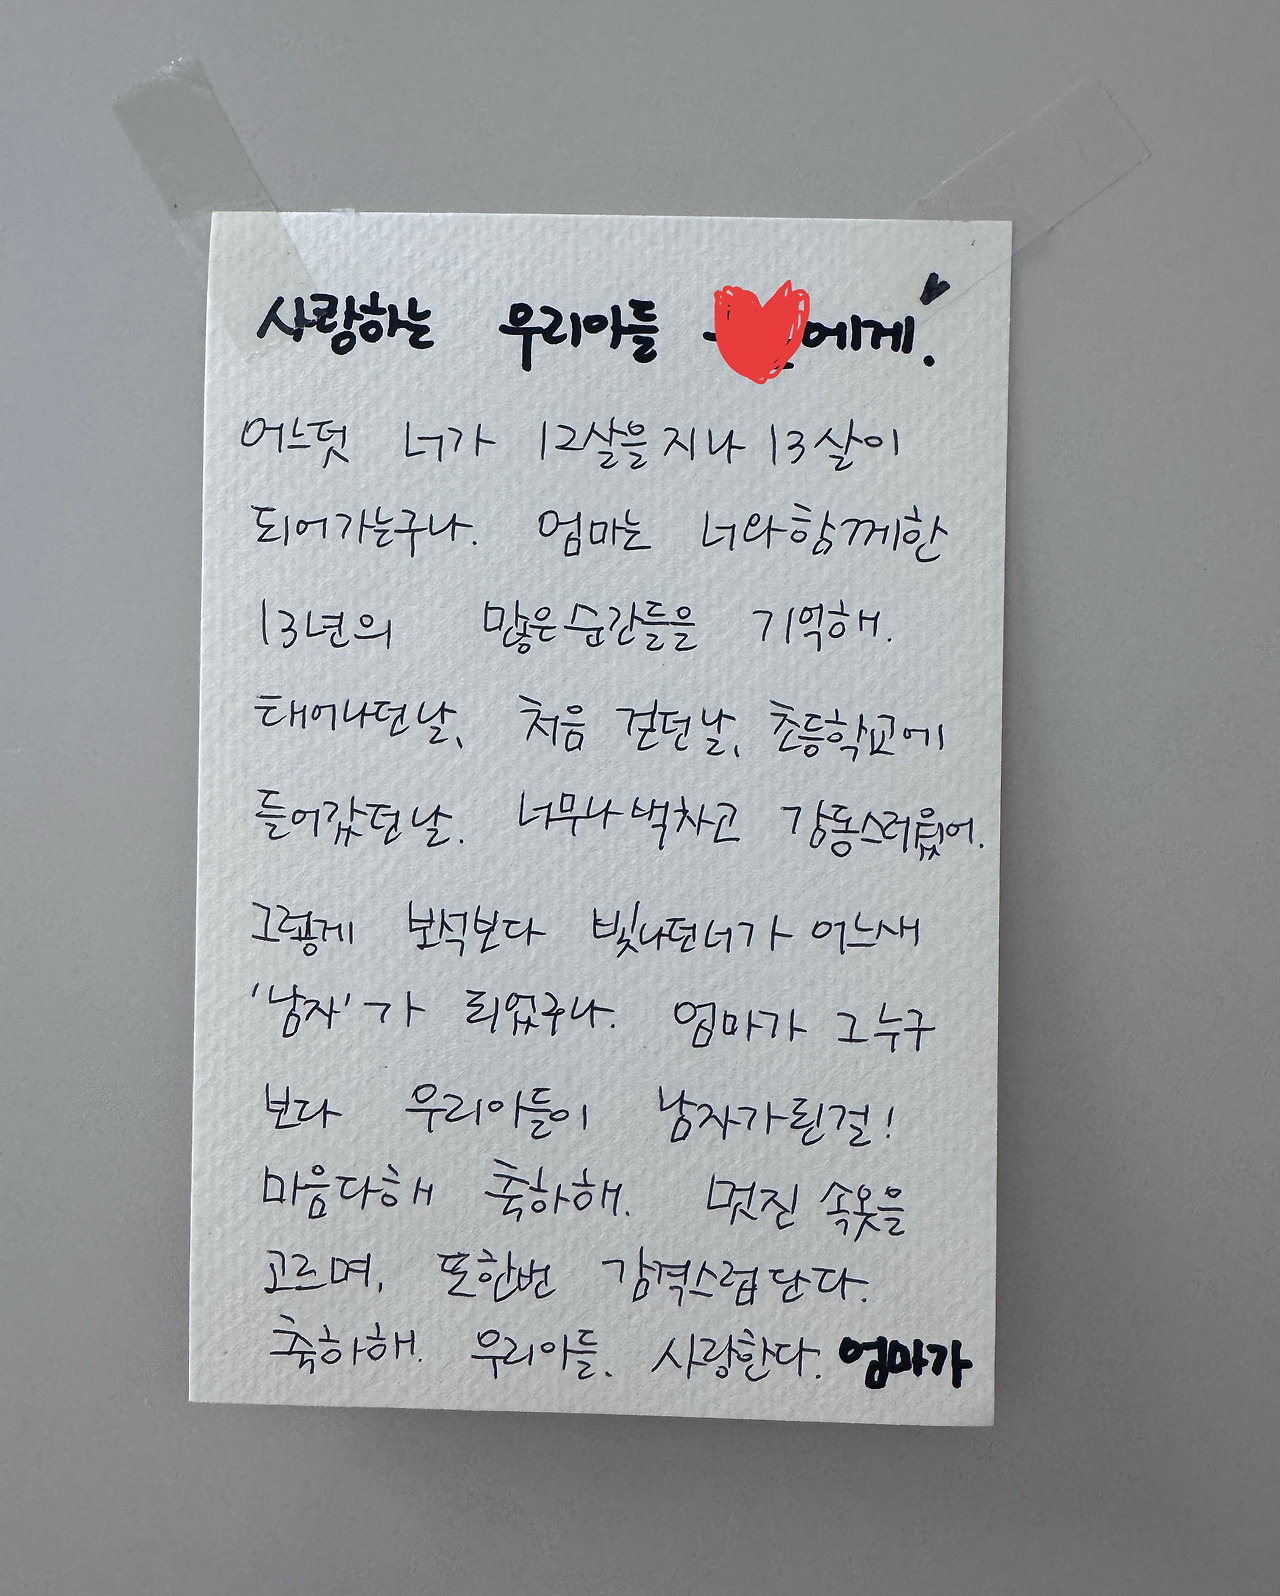 사랑하는 우리아들 에게.
어느덧 너가 12살을 지나 13살이
되어가는구나. 엄마는 너와함께한
13년의 많은순간들을 기억해.
태어나던날, 처음 걷던날, 초등학교에
들어갔던날. 너무나 벅차고 감동스러웠어.
그렇게 보석보다 빛나던너가 어느새
'남자'가 되었구나. 엄마가 그 누구
보다 우리아들이 남자가된걸!
마음다해 축하해. 멋진 속옷을
고르며, 또한번 감격스럽단다.
축하해. 우리아들. 사랑한다. 엄마가